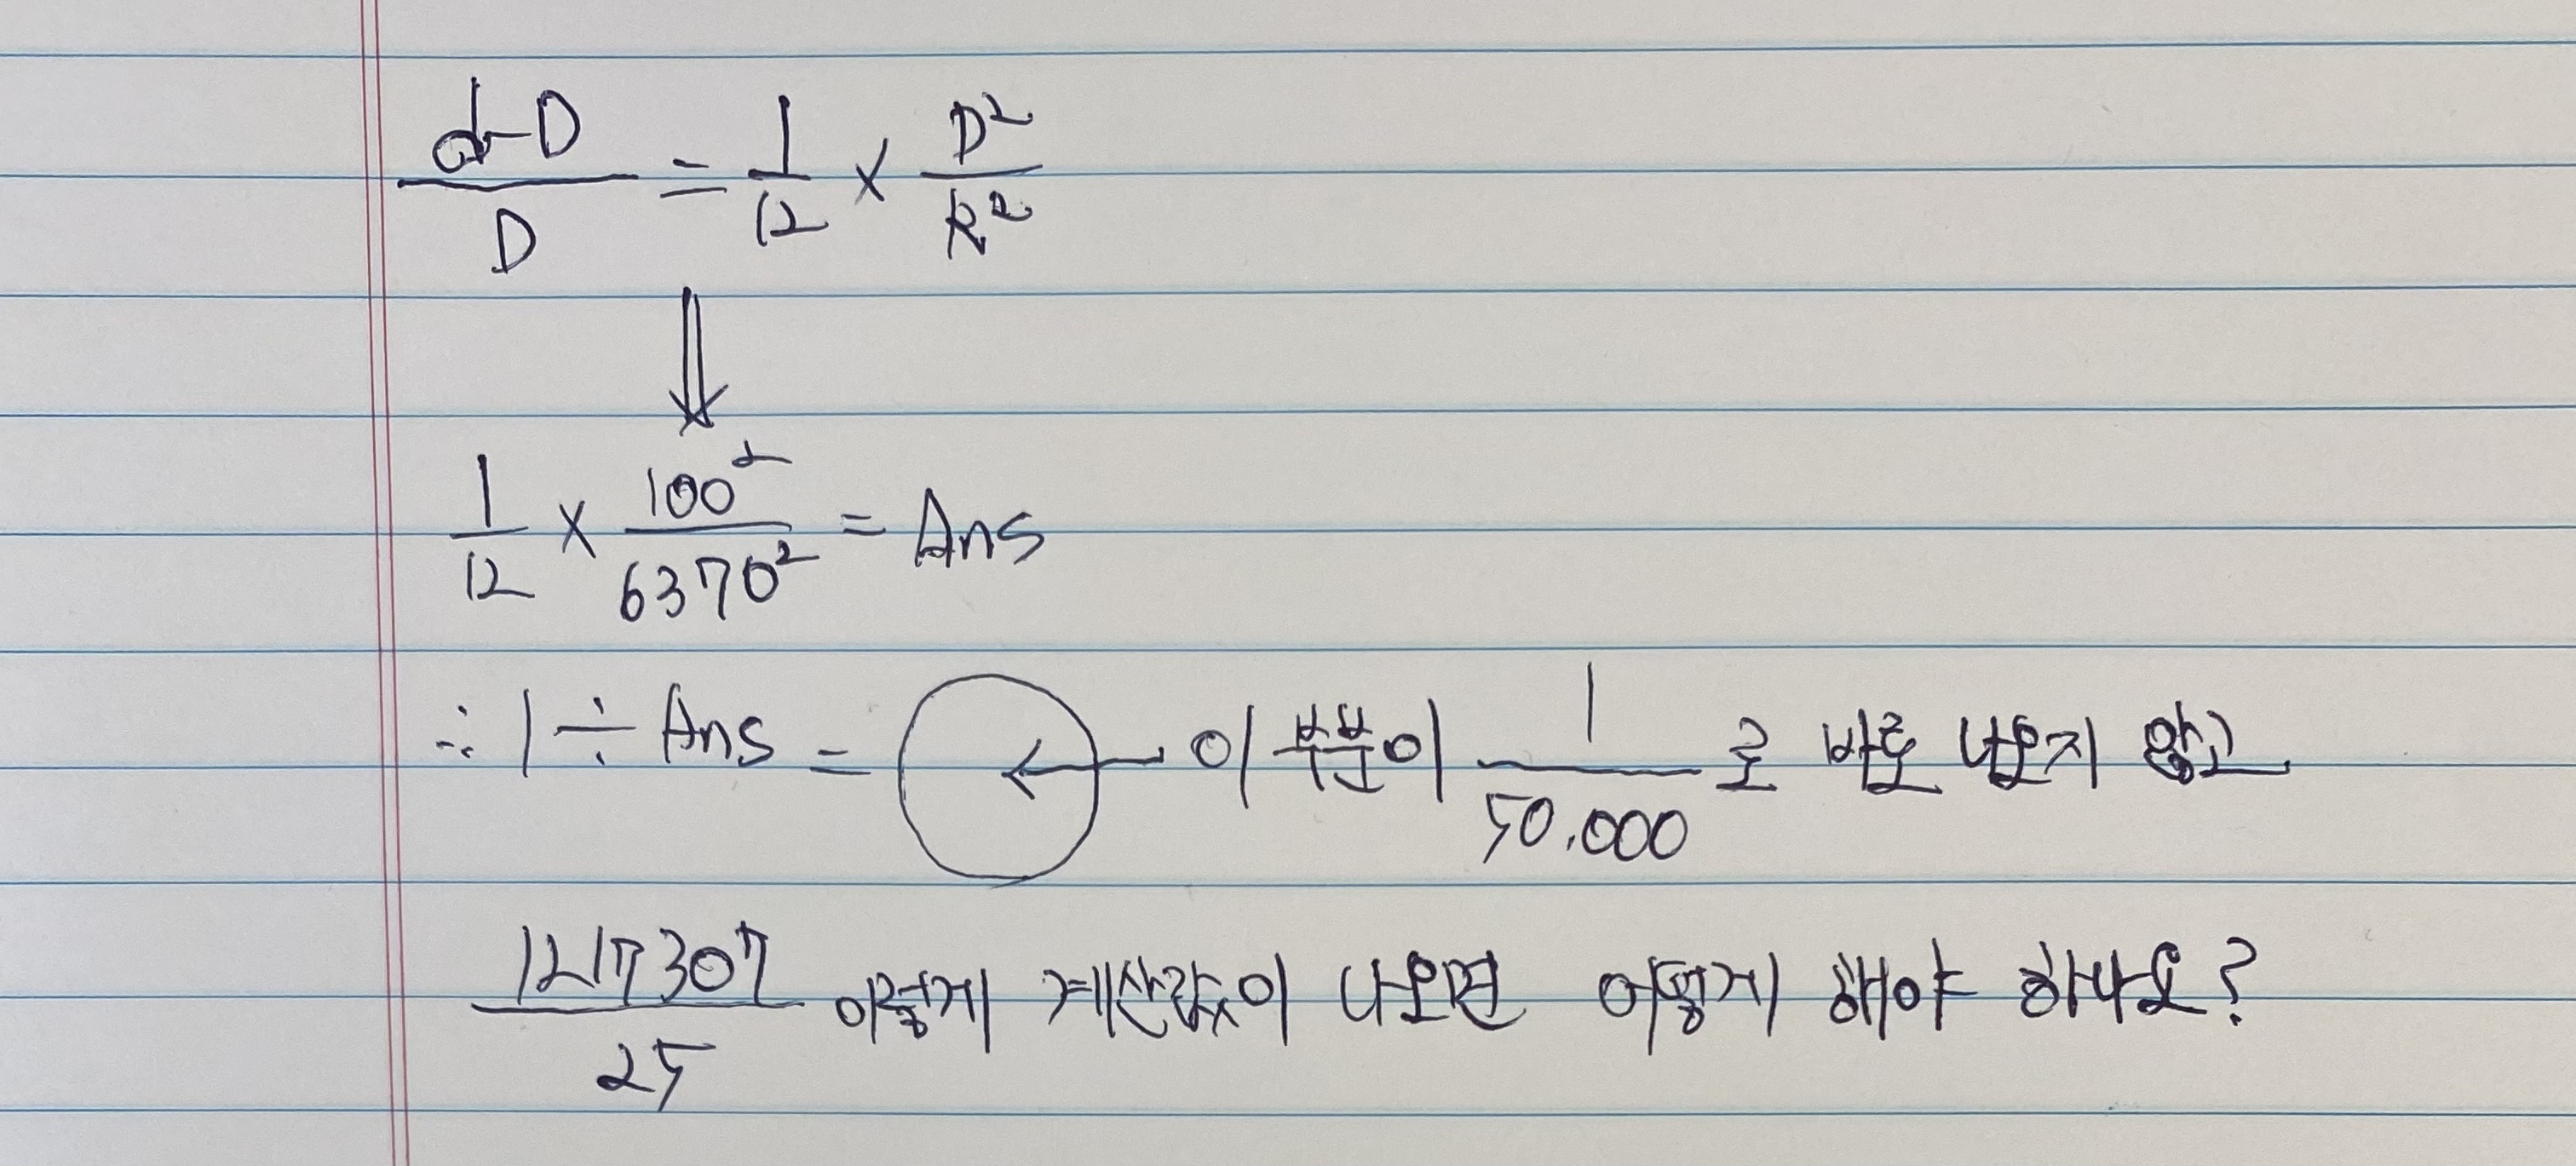 d-D/D = 1/12 × D²/R²
⇓
1/12 × 100²/6370² = Ans
∴ 1 ÷ Ans = ◯ ← 이 부분이 1/50,000 로 바로 나오지 않고
1217307/25 이렇게 계산값이 나오면 어떻게 해야 하나요?